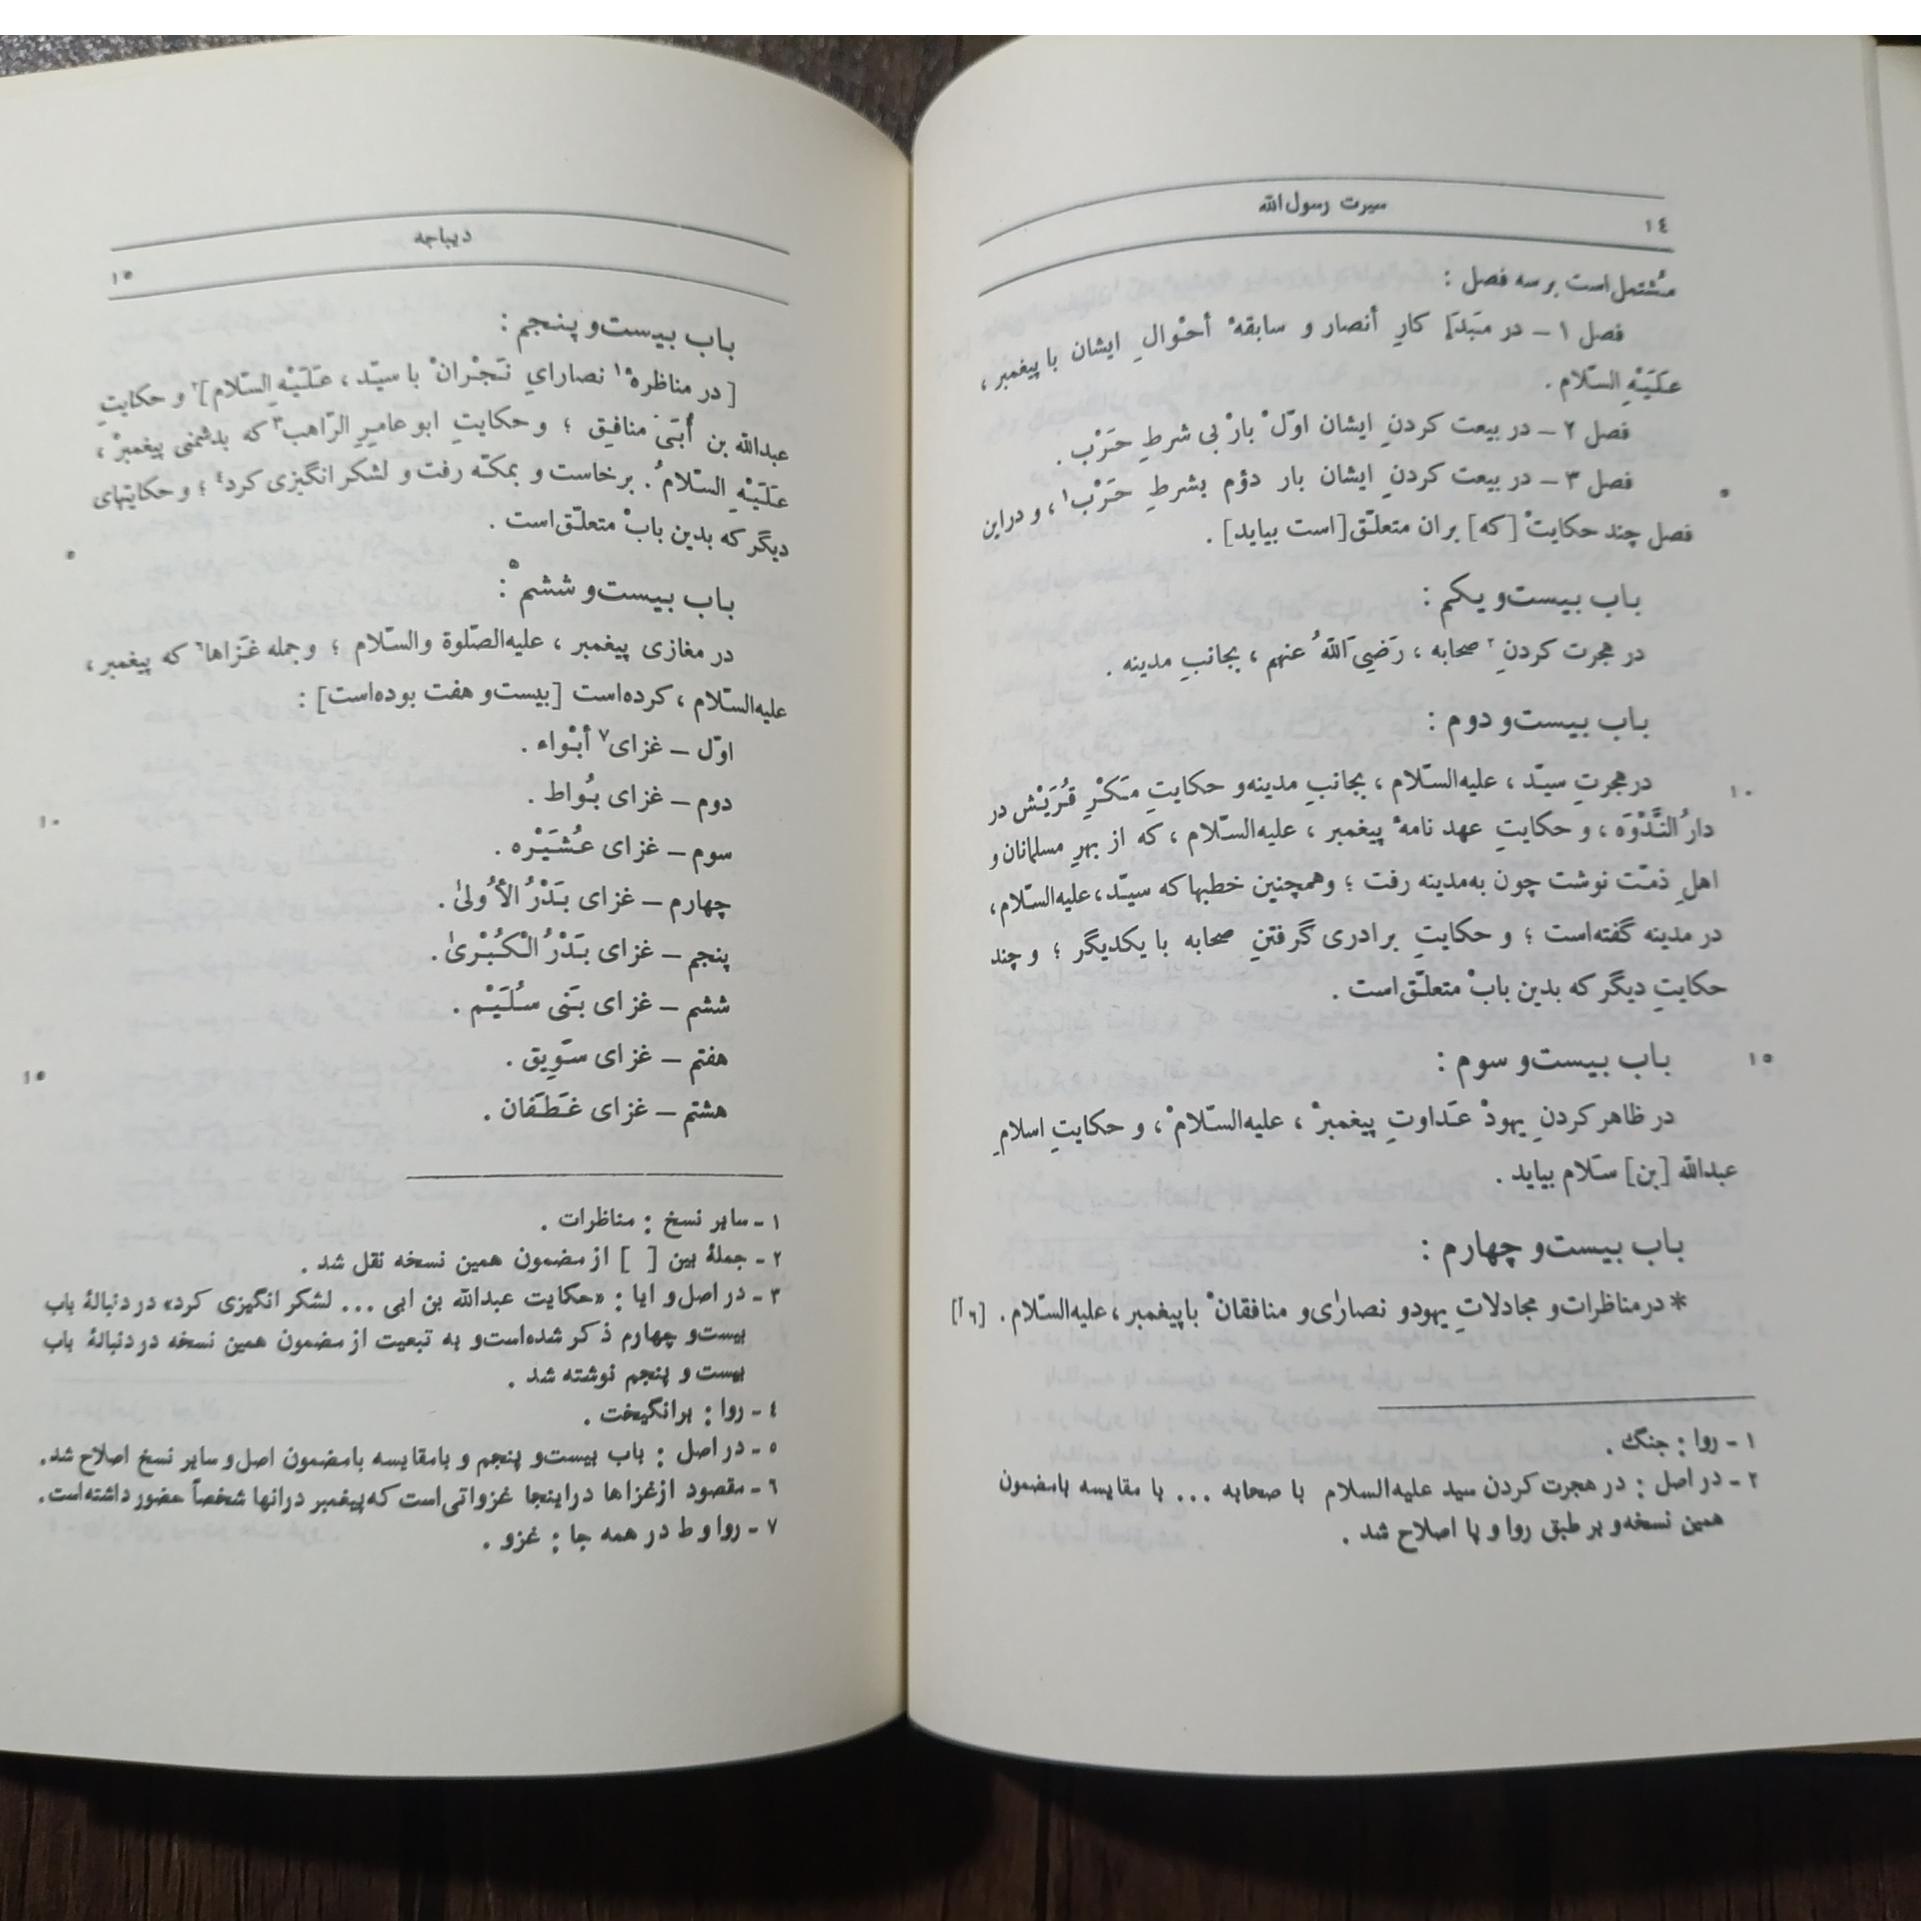 سیرت رسول‌الله
١٤
مُشتمل است بر سه فصل :
فصل ١ – در مَبْدَاِ کارِ أنصار و سابقهٔ أحْوالِ ایشان با پیغمبر ،
عَلَیْهِ السّلام .
فصل ٢ – در بیعت کردنِ ایشان اوّلْ بارْ بی شرطِ حَرْب .
فصل ٣ – در بیعت کردنِ ایشان بار دوّم بشرطِ حَرْب١ ، و دراین
٥
فصل چند حکایتْ [که] بران متعلّق [است بیاید] .
باب بیست‌و یکم :
در هجرت کردنِ ٢ صحابه ، رَضِیَ اللّهُ عنهم ، بجانبِ مدینه .
باب بیست‌و دوم :
درهجرتِ سیّد ، علیه‌السّلام ، بجانبِ مدینه‌و حکایتِ مَکْرِ قُرَیْش در
١٠
دارُ النَّدْوَه ، و حکایتِ عهد نامهٔ پیغمبر ، علیه‌السّلام ، که از بهرِ مسلمانان و
اهلِ ذمّت نوشت چون به‌مدینه رفت ؛ وهمچنین خطبها که سیّد ، علیه‌السّلام ،
در مدینه گفته‌است ؛ و حکایتِ برادری گرفتنِ صحابه با یکدیگر ؛ و چند
حکایتِ دیگر که بدین بابْ متعلّق‌است .
باب بیست‌و سوم :
١٥
در ظاهر کردنِ یهودْ عَداوتِ پیغمبرْ ، علیه‌السّلامْ ، و حکایتِ اسلامِ
عبدالله [بن] سَلام بیاید .
باب بیست‌و چهارم :
* در مناظرات‌و مجادلاتِ یهودو نصارٰی‌و منافقانْ باپیغمبر ، علیه‌السّلام . [٦آ]
١ – روا : جنگ .
٢ – در اصل : در هجرت کردن سید علیه‌السلام با صحابه ... با مقایسه بامضمون
همین نسخه‌و بر طبق روا و پا اصلاح شد .
دیباجه
١٥
باب بیست‌و پنجم :
[ در مناظرهٔ١ نصارایِ نَجْرانْ با سیّد ، عَلَیْهِ السّلام]٢ و حکایتِ
عبدالله بن أُبَیّ منافِق ؛ و حکایتِ ابو عامرِ الرّاهب٣ که بدشمنی پیغمبرْ ،
عَلَیْهِ السّلامُ ، برخاست و بمکّه رفت و لشکر انگیزی کرد٤ ؛ و حکایتهای
دیگر که بدین بابْ متعلّق‌است .
٥
باب بیست‌و ششم٥ :
در مغازی پیغمبر ، علیه‌الصّلوة والسّلام ؛ و جمله غَزاها٦ که پیغمبر ،
علیه‌السّلام ، کرده‌است [بیست‌و هفت بوده‌است] :
اوّل – غزای٧ أبْواء .
دوم – غزای بُواط .
١٠
سوم – غزای عُشَیْره .
چهارم – غزای بَدْرُ الأُولیٰ .
پنجم – غزای بَدْرُ الْکُبْریٰ .
ششم – غزای بَنی سُلَیْم .
هفتم – غزای سَوِیق .
١٥
هشتم – غزای غَطَفان .
١ – سایر نسخ : مناظرات .
٢ – جملهٔ بین [ ] از مضمون همین نسخه نقل شد .
٣ – در اصل‌و ایا : «حکایت عبدالله بن ابی ... لشکر انگیزی کرد» در دنبالهٔ باب
بیست‌و چهارم ذکر شده‌است‌و به تبعیت از مضمون همین نسخه در دنبالهٔ باب
بیست و پنجم نوشته شد .
٤ – روا : برانگیخت .
٥ – در اصل : باب بیست‌و پنجم و بامقایسه بامضمون اصل‌و سایر نسخ اصلاح شد .
٦ – مقصود ازغزاها دراینجا غزواتی‌است که‌پیغمبر درانها شخصاً حضور داشته‌است .
٧ – روا و ط در همه جا : غزو .